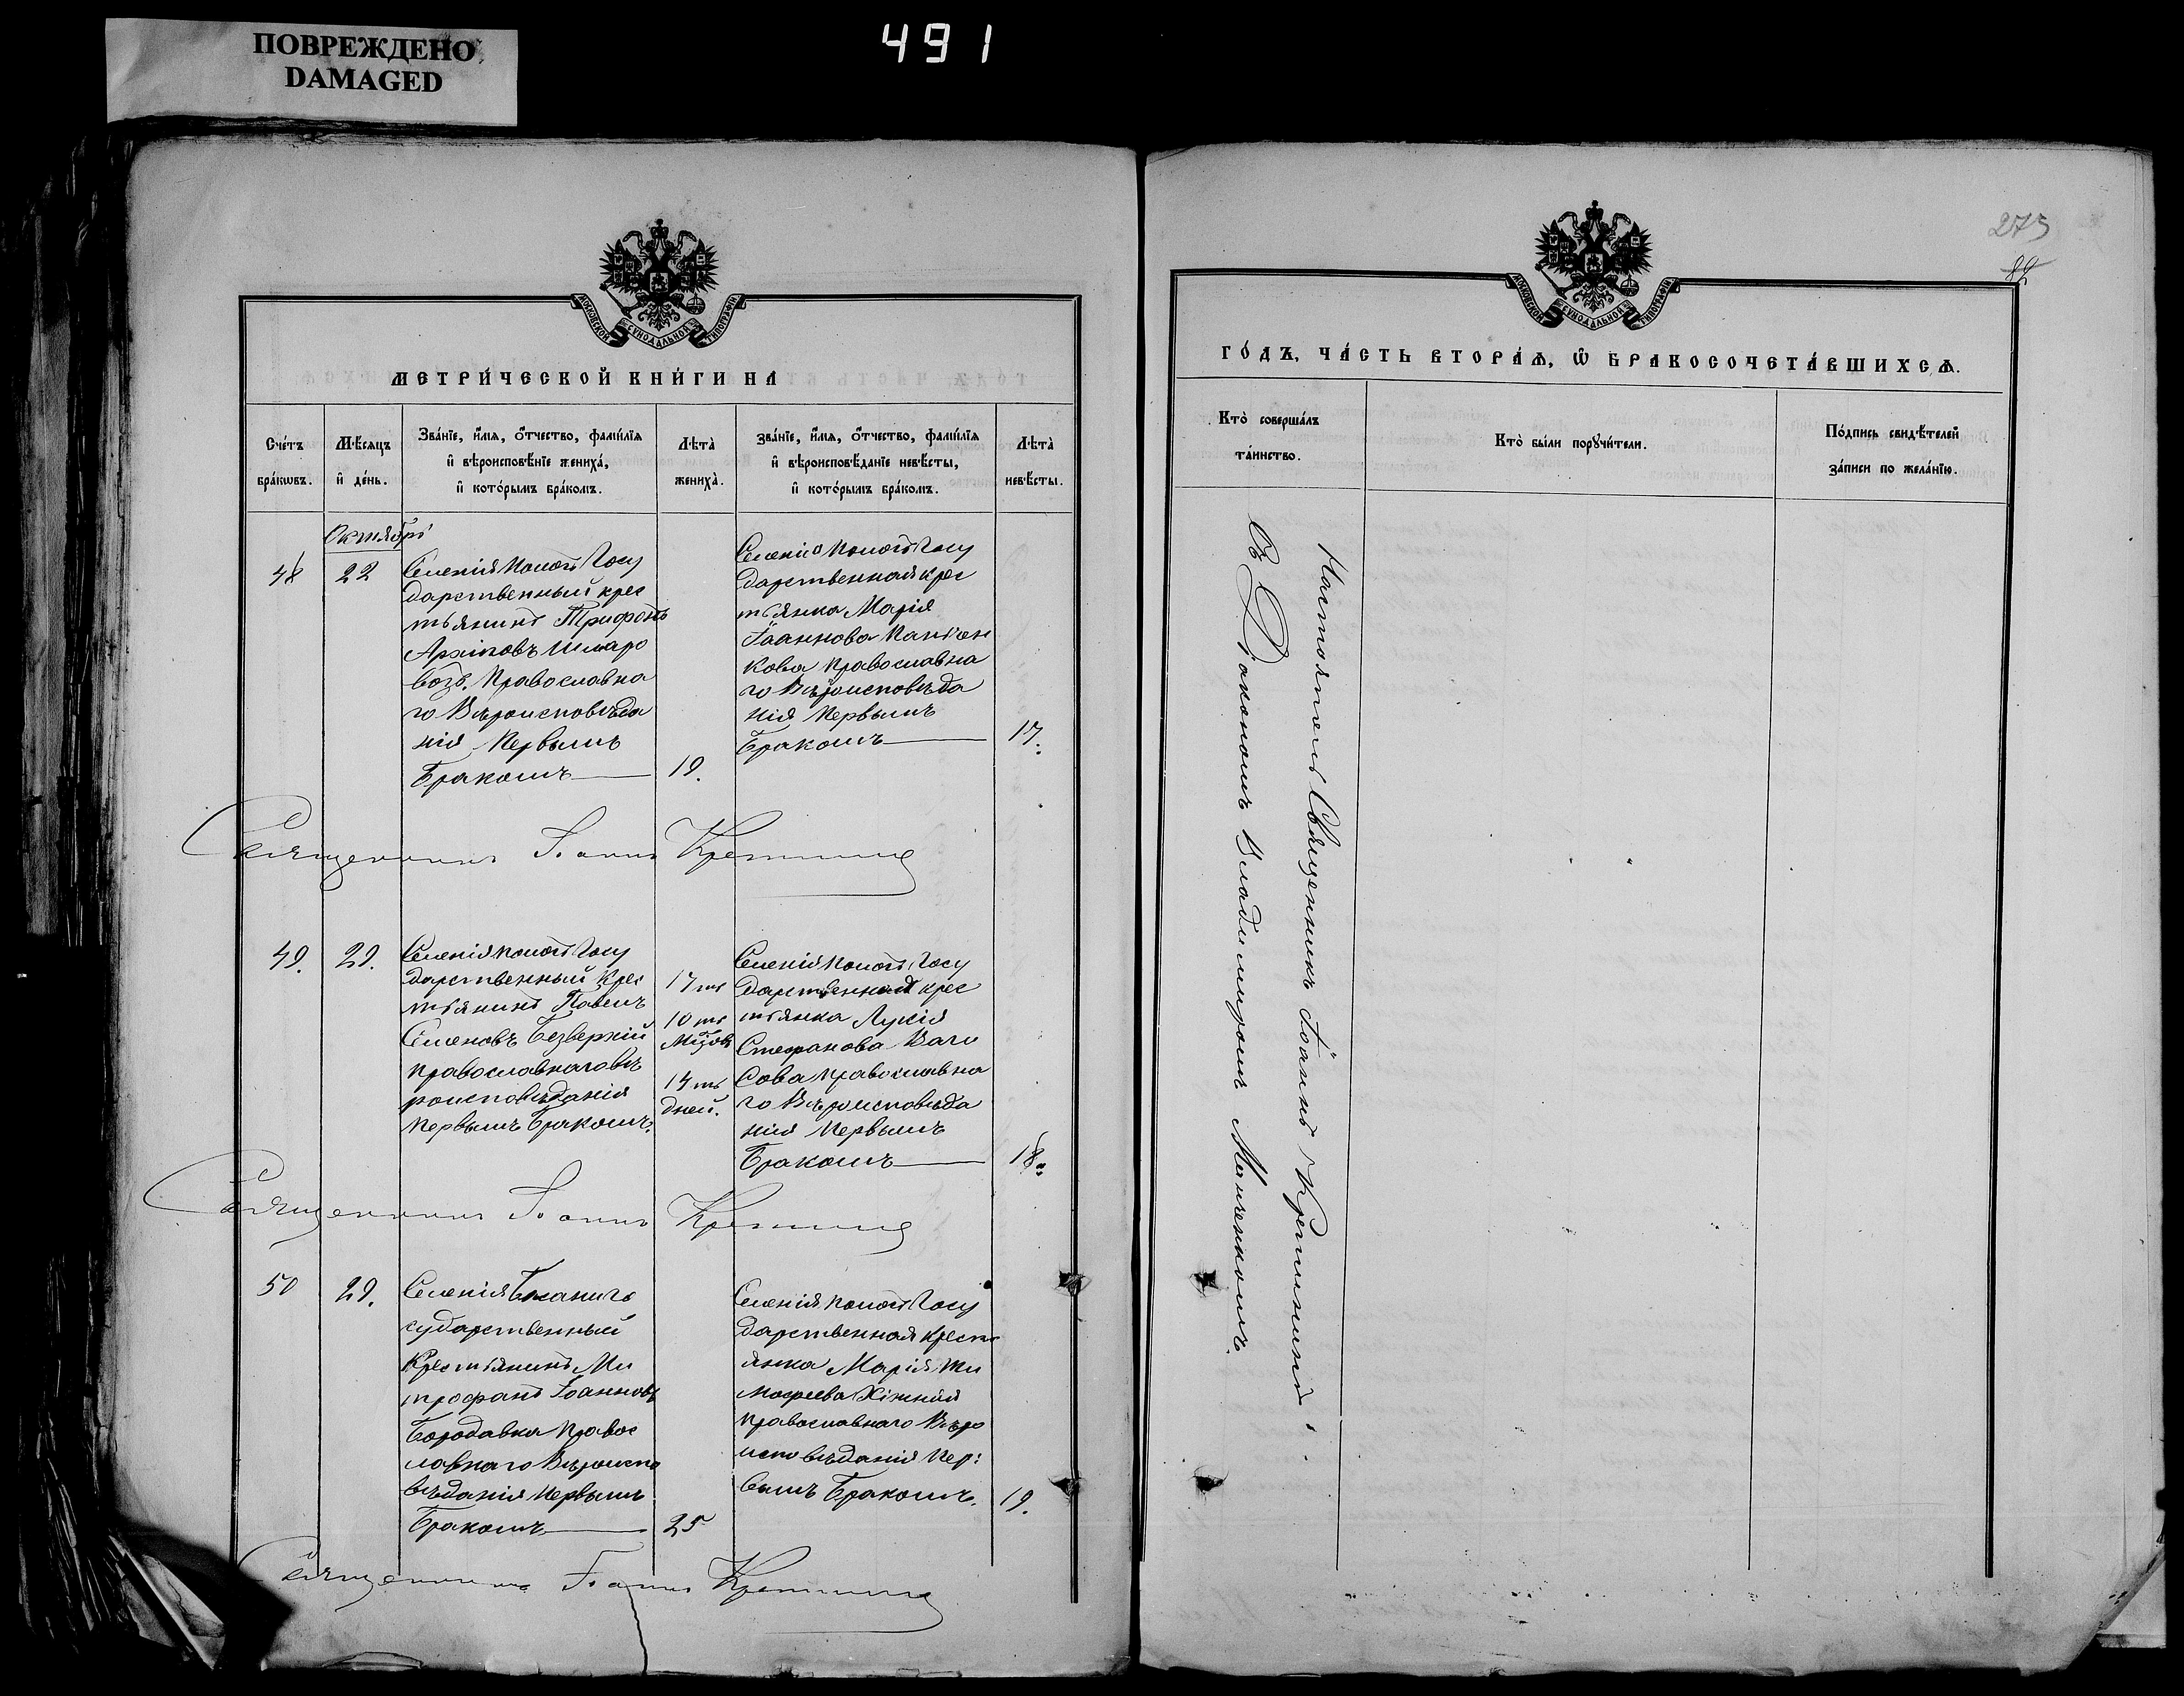 491
ПОВРЕЖДЕНО
DAMAGED
МОСКОВСКОЙ СѴНОДАЛЬНОЙ ТИПОГРАФІИ
МЕТРИ́ЧЕСКОЙ КНИ́ГИ НА
Сче́тъ бра́кѡвъ.
Мѣ́сяцъ и҆ де́нь.
Зва́нїе, и҆́мѧ, о҆́тчество, фами́лїѧ
и҆ вѣроисповѣ́нїе жениха́,
и҆ кото́рымъ бра́комъ.
Лѣта̀ жениха̀.
зва́нїе, и҆́мѧ, о҆́тчество, фами́лїѧ
и҆ вѣроисповѣ́данїе невѣ́сты,
и҆ кото́рымъ бра́комъ.
Лѣта̀ невѣ́сты.
Октябрь
48
22
Селенія Госу
дарственный крес
тьянинъ Трифонъ
Архиповъ
Православна
го Вѣроисповѣда
нія Первымъ
Бракомъ
19.
Селенія Госу
дарственная крес
тьянка Марія
Іоаннова
кова Православна
го Вѣроисповѣда
нія Первымъ
Бракомъ
17.
Священникъ Іоаннъ
49.
29.
Селенія Госу
дарственный Крес
тьянинъ Павелъ
Семеновъ Безверхій
православнаго вѣ
роисповѣданія
Первымъ Бракомъ.
17 ть
10 ть
14 ть
дней.
Селенія Госу
дарственная крес
тьянка Лукія
Стефанова
Сова православна
го Вѣроисповѣда
нія Первымъ
Бракомъ
18.
Священникъ Іоаннъ
50
29.
Селенія
сударственный
Крестьянинъ Ми
трофанъ Іоанновъ
Бородавка Правос
лавнаго Вѣроиспо
вѣданія Первымъ
Бракомъ
25
Селенія Госу
дарственная Кресть
янка Марія Ти
мофеева
православнаго Вѣро
исповѣданія Пер:
вымъ Бракомъ.
19.
Священникъ Іоаннъ
273
82
МОСКОВСКОЙ СѴНОДАЛЬНОЙ ТИПОГРАФІИ
ГО́ДЪ, ЧА́СТЬ ВТОРА́Ѧ, Ѽ БРАКОСОЧЕТА́ВШИХСѦ.
Кто̀ соверша́лъ
та́инство.
Кто̀ бы́ли порꙋчи́тели.
По́дпись свидѣ́телей
за́писи по жела́нїю.
Настоятель Священникъ Іоаннъ
Съ Діакономъ Владимиромъ